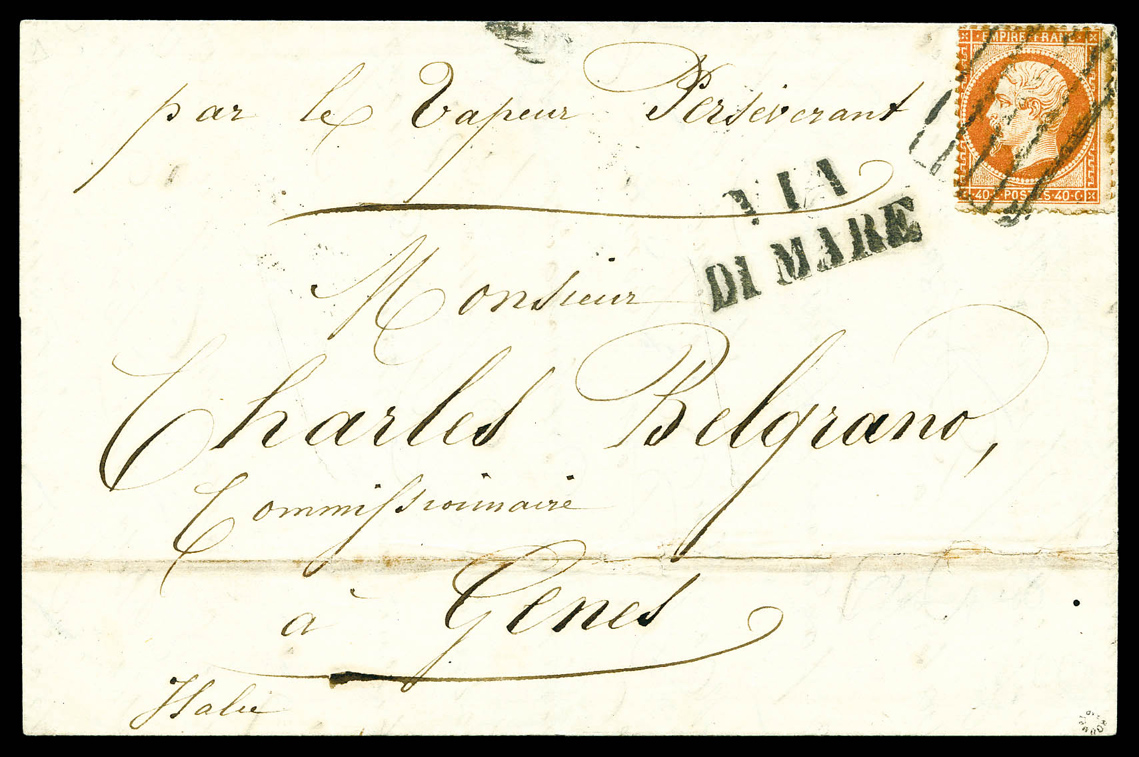 par le Vapeur Persévérant
EMPIRE FRANC
40 C POSTES 40 C
VIA
DI MARE
Monsieur
Charles Belgrano,
Commissionnaire
à Gènes
Italie